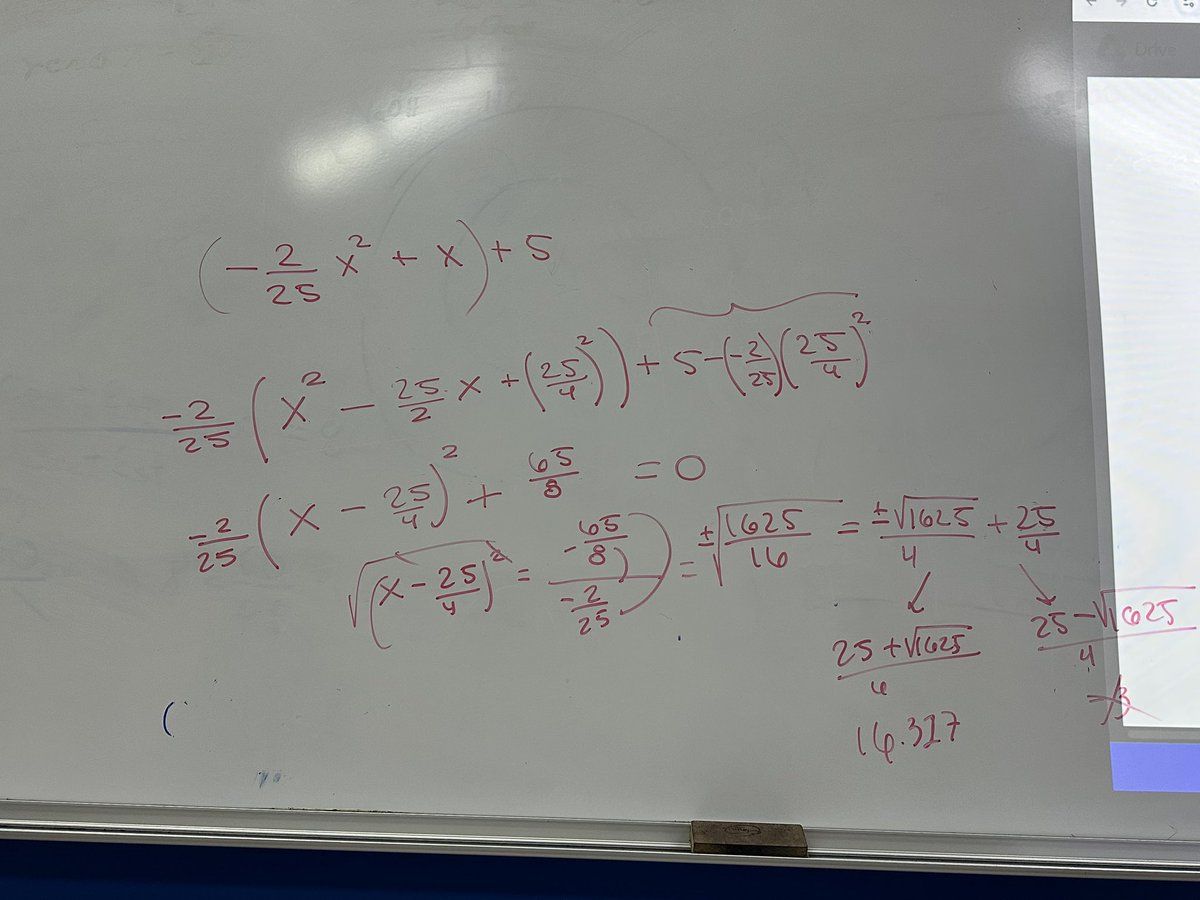 (-2/25 x² + x) + 5
-2/25 (x² - 25/2 x + (25/4)²) + 5 - (-2/25)(25/4)²
-2/25 (x - 25/4)² + 65/8 = 0
√(x - 25/4)² = (-65/8)/(-2/25) = ±√(1625/16) = ±√1625/4 + 25/4
(25 + √1625)/4 (25 - √1625)/4
16.327
(
Drive